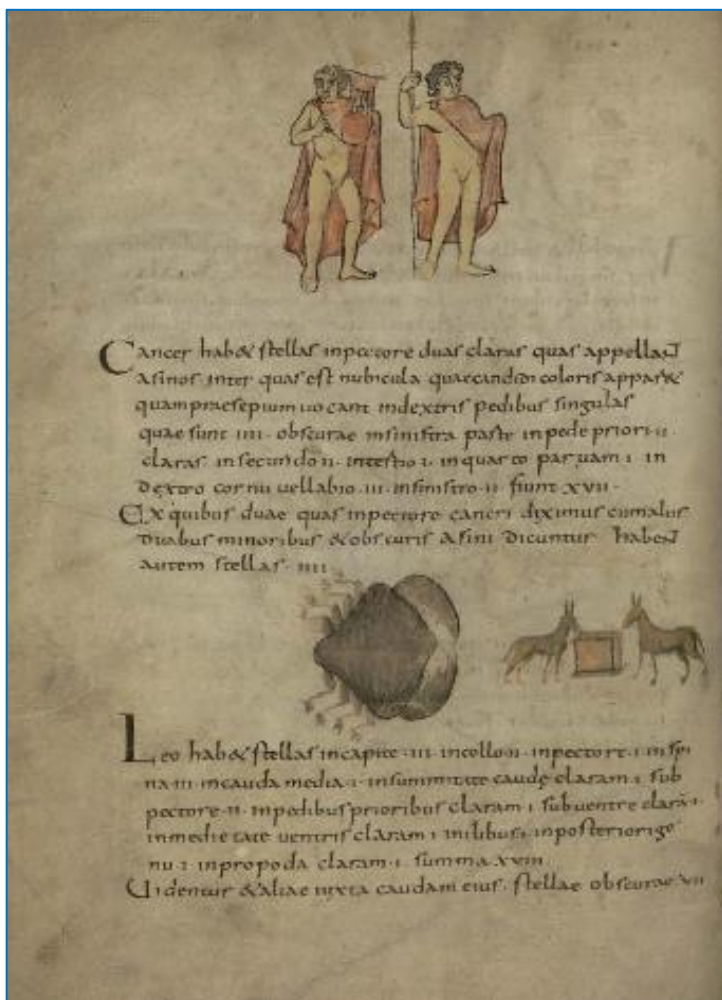 Cancer hab& stellas inpectore duas claras quas appellant
asinos inter quas est nubicula quaecandidi coloris appar&
quampraesepium uocant indextris pedibus singulas
quae sunt IIII· obscurae insinistra parte inpede priori·II·
claras insecundo II· intertio I· inquarto paruam I in
dextro cornu uellabio III· insinistro·II· fiunt XVII·
Ex quibus duae quas inpectore cancri diximus cumaliis
duabus minoribus & obscuris asini dicuntur habent
autem stellas·IIII
Leo hab& stellas incapite·III· incollo·II· inpectore·I· inspi
na·III· incauda media·I· insummitate caudę claram·I· sub
pectore·II· inpedibus prioribus claram I subuentre clarā·I·
inmedietate uentris claram I inposteriorige
nu·I· inpropoda claram·I· summa·XVIII
Uidentur &aliae iuxta caudam eius· stellae obscurae·VII